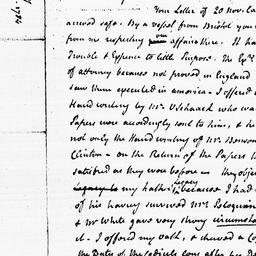 Your Letter of 20 Nov. la
arrived safe. By a vessel from Bristol you
from me respecting your affairs there. It ha
Trouble & Expence to little Purpose. The
of attorney because not proved in England
saw them executed in america - I offered
Hand writing by Mr. VSchaack who was
Papers were accordingly sent to him, & he
not only the Hand writing of Mr. Benson
Clinton - on the Return of the Papers th
satisfied as they were before - they obje
my father's Legacy because I had
of his having survived Mrs. Peloquin
& Mr White gave very strong circumsta
it - I offered my oath, & shewed a Co
the Dates of the